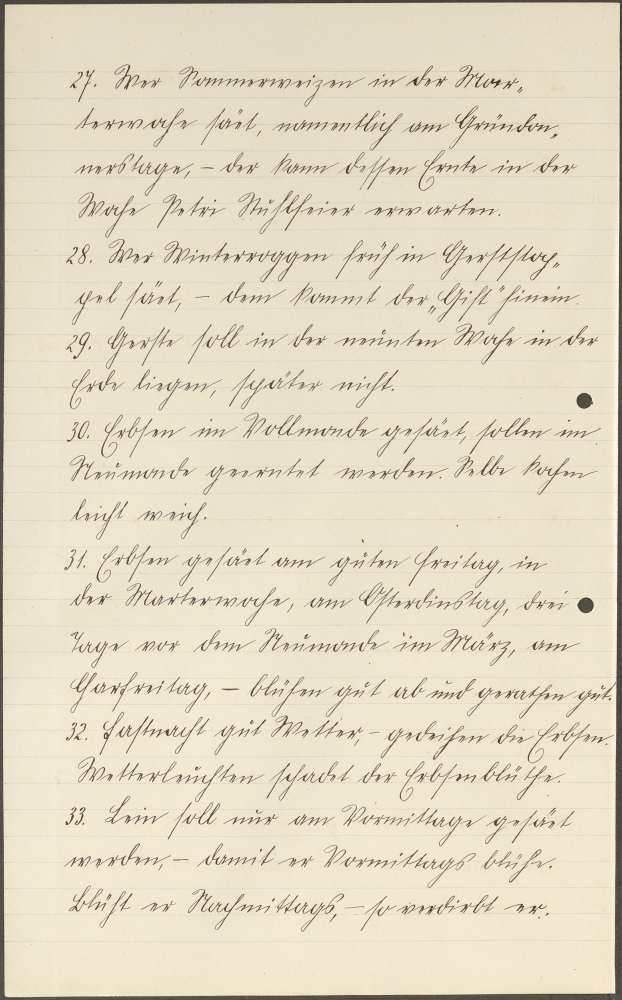 27. Wer Sommerweizen in der Mar-
terwoche säet, namentlich am Gründon-
nerstage, – der kann dessen Ernte in der
Woche Petri Stuhlfeier erwarten.
28. Wer Winterroggen früh in Gerststop-
pel säet, – dem kommt der „Gift“ hinein.
29. Gerste soll in der neunten Woche in der
Erde liegen, später nicht.
30. Erbsen im Vollmonde gesäet, sollen im
Neumonde geerntet werden. Selbe kochen
leicht weich.
31. Erbsen gesäet am guten Freitag, in
der Marterwoche, am Osterdinstag, drei
Tage vor dem Neumonde im März, am
Charfreitag, – blühen gut ab und gerathen gut.
32. Fastnacht gut Wetter, – gedeihen die Erbsen.
Wetterleuchten schadet der Erbsenblüthe.
33. Lein soll nur am Vormittage gesäet
werden, – damit er Vormittags blühe.
Blüht er Nachmittags, – so verdirbt er.